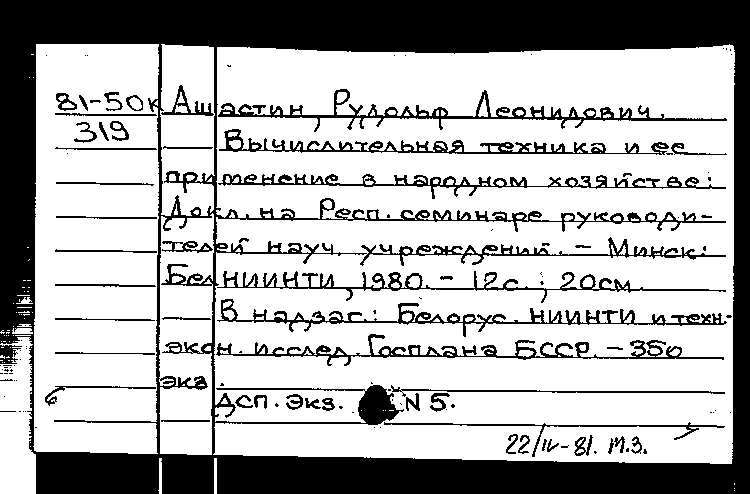 81-50к Ашастин, Рудольф Леонидович.
319
Вычислительная техника и ее
применение в народном хозяйстве:
Докл. на Респ. семинаре руководи-
телей науч. учреждений. - Минск:
БелНИИНТИ, 1980. - 12с.; 20см.
В надзаг.: Белорус. НИИНТИ и техн.-
экон. исслед. Госплана БССР. - 350
экз.
ДСП. Экз. N 5.
22/IV-81. М.З.